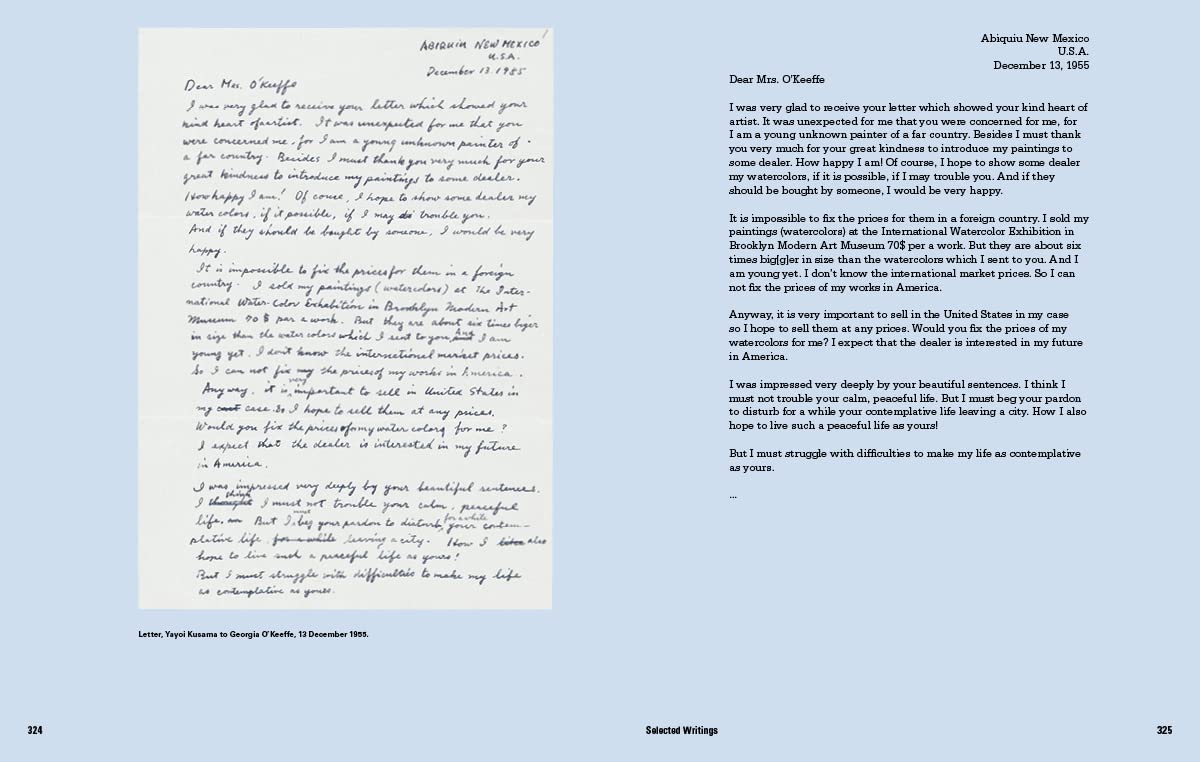 ABIQUIU NEW MEXICO
U.S.A.
December 13. 1955
Dear Mrs. O'Keeffe
I was very glad to receive your letter which showed your
kind heart of artist. It was unexpected for me that you
were concerned me, for I am a young unknown painter of
a far country. Besides I must thank you very much for your
great kindness to introduce my paintings to some dealer.
How happy I am! Of cource, I hope to show some dealer my
water colors, if it possible, if I may trouble you.
And if they should be bought by someone, I would be very
happy.
It is impossible to fix the prices for them in a foreign
country. I sold my paintings (watercolors) at The Inter-
national Water-Color Exhabition in Brooklyn Modern Art
Museum 70 $ par a work. But they are about six times biger
in size than the water colors which I sent to you. And I am
young yet. I don't know the international market prices.
So I can not fix my the prices of my works in America.
Anyway, it is very important to sell in United States in
my case. So I hope to sell them at any prices.
Would you fix the prices of my water colors for me?
I expect that the dealer is interested in my future
in America.
I was impressed very deeply by your beautiful sentences.
I thought think I must not trouble your calm, peaceful
life. But I must beg your pardon to disturb for a while your contem-
plative life for a while leaving a city. How I also
hope to live such a peaceful life as yours!
But I must struggle with difficulties to make my life
as contemplative as yours.
Letter, Yayoi Kusama to Georgia O'Keeffe, 13 December 1955.
324
Abiquiu New Mexico
U.S.A.
December 13, 1955
Dear Mrs. O'Keeffe
I was very glad to receive your letter which showed your kind heart of
artist. It was unexpected for me that you were concerned for me, for
I am a young unknown painter of a far country. Besides I must thank
you very much for your great kindness to introduce my paintings to
some dealer. How happy I am! Of course, I hope to show some dealer
my watercolors, if it is possible, if I may trouble you. And if they
should be bought by someone, I would be very happy.
It is impossible to fix the prices for them in a foreign country. I sold my
paintings (watercolors) at the International Watercolor Exhibition in
Brooklyn Modern Art Museum 70$ per a work. But they are about six
times big[g]er in size than the watercolors which I sent to you. And I
am young yet. I don't know the international market prices. So I can
not fix the prices of my works in America.
Anyway, it is very important to sell in the United States in my case
so I hope to sell them at any prices. Would you fix the prices of my
watercolors for me? I expect that the dealer is interested in my future
in America.
I was impressed very deeply by your beautiful sentences. I think I
must not trouble your calm, peaceful life. But I must beg your pardon
to disturb for a while your contemplative life leaving a city. How I also
hope to live such a peaceful life as yours!
But I must struggle with difficulties to make my life as contemplative
as yours.
...
Selected Writings
325